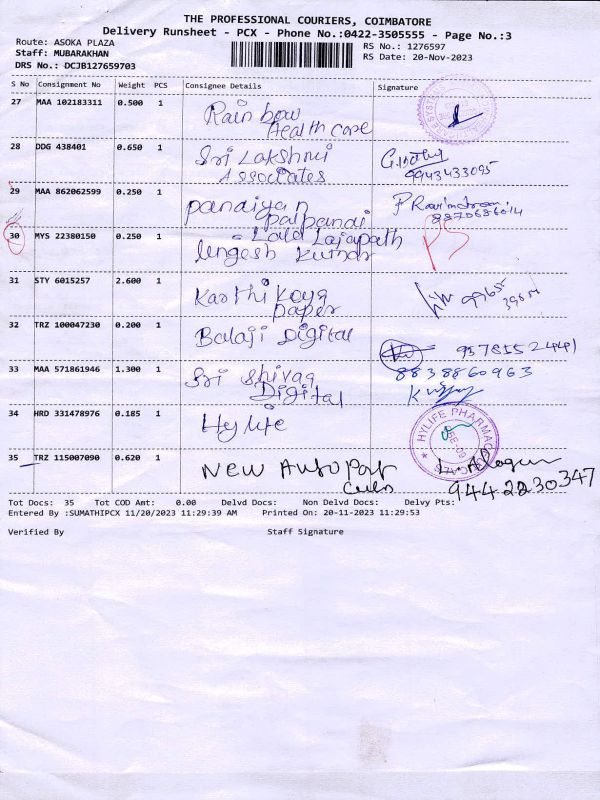 THE PROFESSIONAL COURIERS, COIMBATORE
Delivery Runsheet - PCX - Phone No.:0422-3505555 - Page No.:3
Route: ASOKA PLAZA
RS No.: 1276597
Staff: MUBARAKHAN
RS Date: 20-Nov-2023
DRS No.: DCJB127659703
S No Consignment No Weight PCS Consignee Details Signature
27 MAA 102183311 0.500 1 Rainbow
Health care
28 DDG 438401 0.650 1 Sri Lakshmi
Associates
9943433095
29 MAA 862062599 0.250 1 pandiyan
palpandi
8870686014
30 MYS 22380150 0.250 1 - Lala Lajapath
lingesh kumar
PS
31 STY 6015257 2.600 1 Karthikeya
paper
32 TRZ 100047230 0.200 1 Balaji Digital
33 MAA 571861946 1.300 1 Sri Shivaa
Digital
8838860963
34 HRD 331478976 0.185 1 Hylife
HYLIFE PHARMA
35 TRZ 115007090 0.620 1 New Auto Part
9442230347
Tot Docs: 35 Tot COD Amt: 0.00 Delvd Docs: Non Delvd Docs: Delvy Pts:
Entered By :SUMATHIPCX 11/20/2023 11:29:39 AM Printed On: 20-11-2023 11:29:53
Verified By Staff Signature